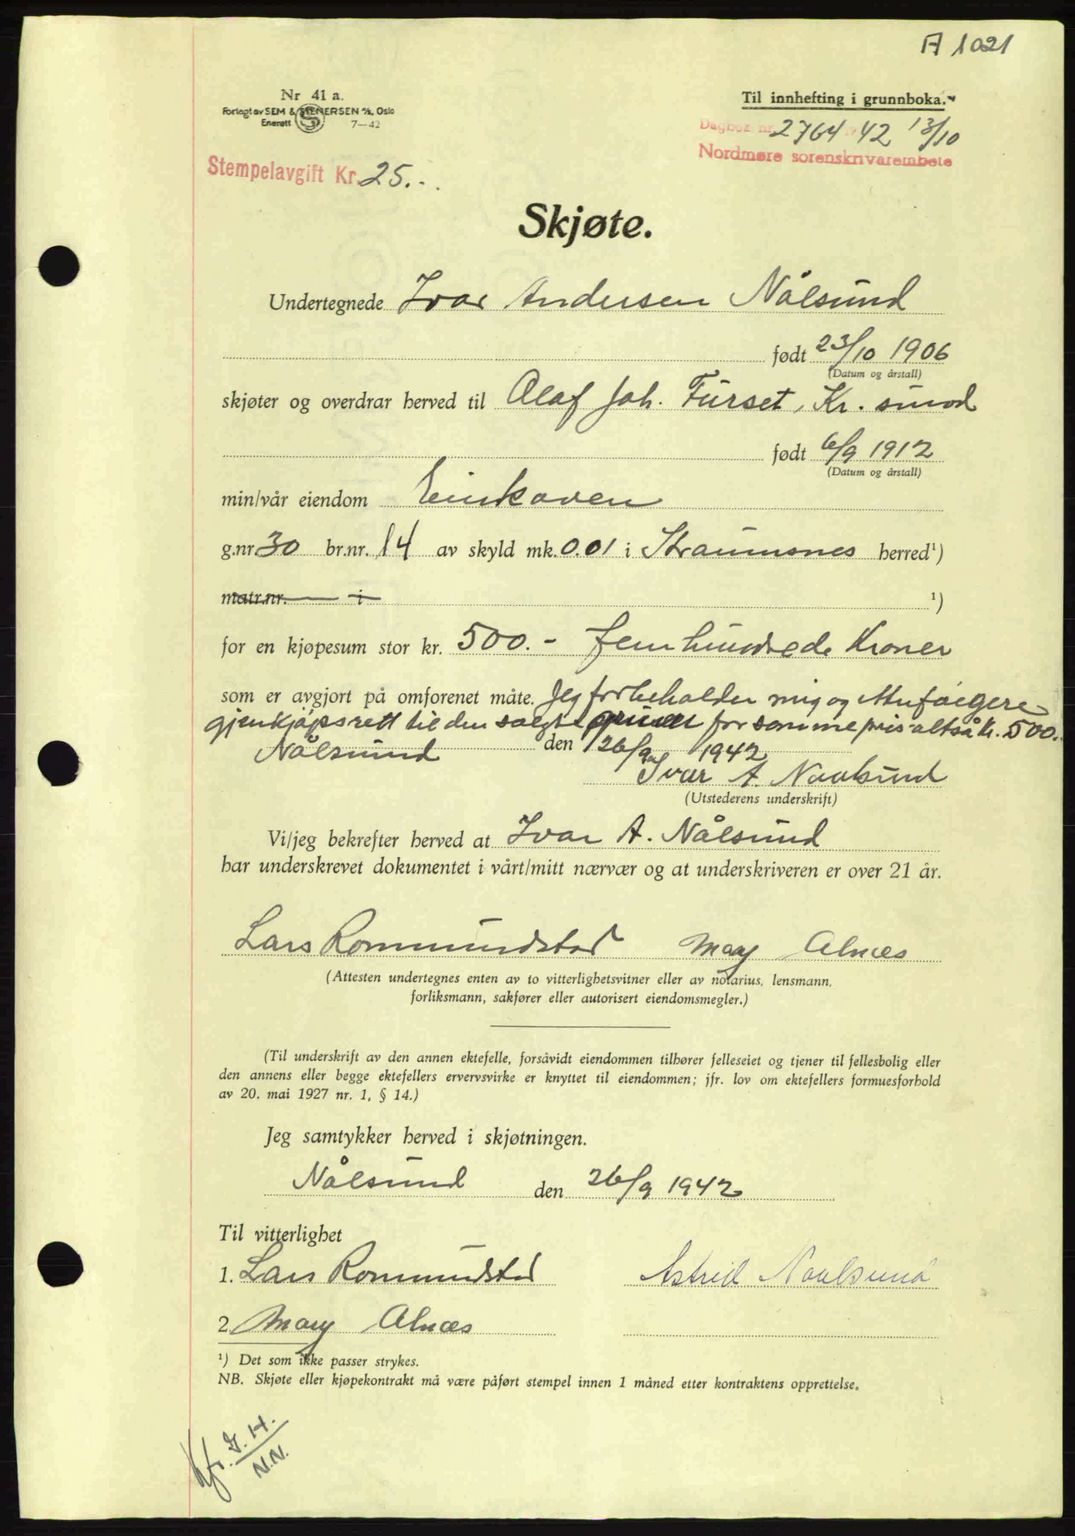 A 1021
Nr 41 a.
Forlagt av SEM & STENERSEN A/S, Oslo
Enerett 7-42
Til innhefting i grunnboka.
Dagbok nr. 2764 42 13/10
Nordmøre sorenskrivarembete
Stempelavgift Kr. 25.-
Skjøte.
Undertegnede Ivar Andersen Nålsund
født 23/10 1906
(Datum og årstall)
skjøter og overdrar herved til Olaf Joh. Furset, Kr. sund
født 6/9 1912
(Datum og årstall)
min/vår eiendom
g.nr. 30 br.nr. 14 av skyld mk. 0.01 i Straumsnes herred¹)
matr.nr. i ¹)
for en kjøpesum stor kr. 500.- femhundrede Kroner
som er avgjort på omforenet måte. Jeg forbeholder mig og
gjenkjøpsrett til den solgte for samme pris altså kr. 500.-
Nålsund den 26/9 1942
Ivar A. Naalsund
(Utstederens underskrift)
Vi/jeg bekrefter herved at Ivar A. Nålsund
har underskrevet dokumentet i vårt/mitt nærvær og at underskriveren er over 21 år.
Lars Rommundstad Mary Alnæs
(Attesten undertegnes enten av to vitterlighetsvitner eller av notarius, lensmann,
forliksmann, sakfører eller autorisert eiendomsmegler.)
(Til underskrift av den annen ektefelle, forsåvidt eiendommen tilhører felleseiet og tjener til fellesbolig eller
den annens eller begge ektefellers ervervsvirke er knyttet til eiendommen; jfr. lov om ektefellers formuesforhold
av 20. mai 1927 nr. 1, § 14.)
Jeg samtykker herved i skjøtningen.
Nålsund den 26/9 1942
Til vitterlighet
1. Lars Rommundstad Astrid Naalsund
2. Mary Alnæs
¹) Det som ikke passer strykes.
NB. Skjøte eller kjøpekontrakt må være påført stempel innen 1 måned etter kontraktens opprettelse.
N.N.